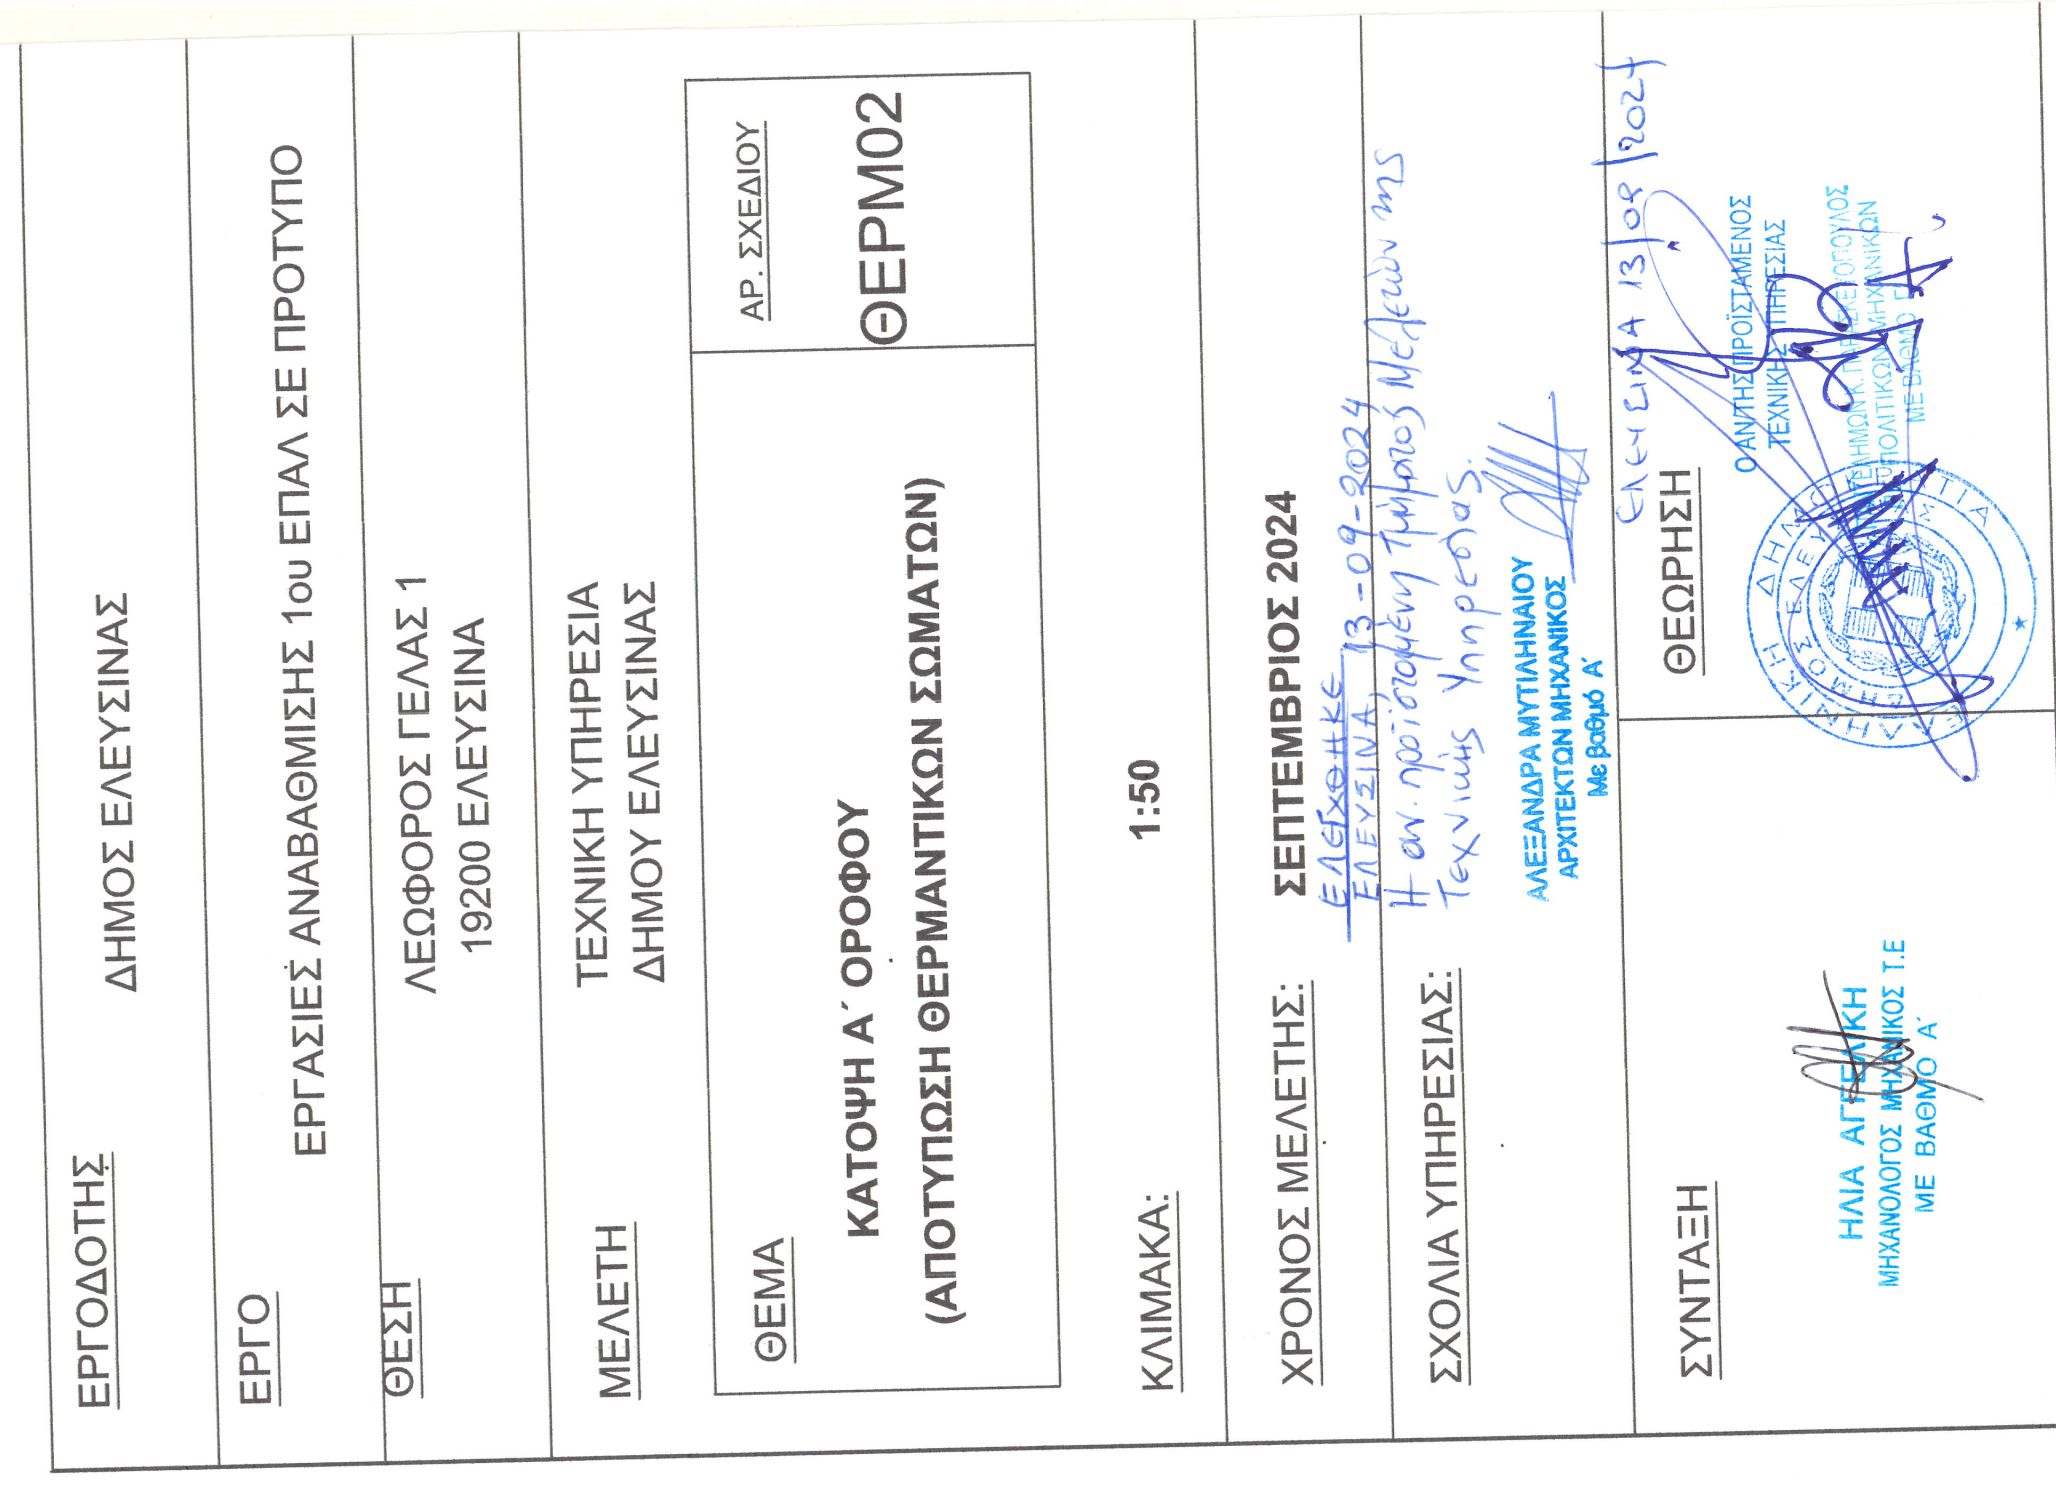 ΕΡΓΟΔΟΤΗΣ ΔΗΜΟΣ ΕΛΕΥΣΙΝΑΣ
ΕΡΓΟ
ΕΡΓΑΣΙΕΣ ΑΝΑΒΑΘΜΙΣΗΣ 1ου ΕΠΑΛ ΣΕ ΠΡΟΤΥΠΟ
ΘΕΣΗ ΛΕΩΦΟΡΟΣ ΓΕΛΑΣ 1
19200 ΕΛΕΥΣΙΝΑ
ΜΕΛΕΤΗ ΤΕΧΝΙΚΗ ΥΠΗΡΕΣΙΑ
ΔΗΜΟΥ ΕΛΕΥΣΙΝΑΣ
ΘΕΜΑ
ΚΑΤΟΨΗ Α΄ ΟΡΟΦΟΥ
(ΑΠΟΤΥΠΩΣΗ ΘΕΡΜΑΝΤΙΚΩΝ ΣΩΜΑΤΩΝ)
ΑΡ. ΣΧΕΔΙΟΥ
ΘΕΡΜ02
ΚΛΙΜΑΚΑ: 1:50
ΧΡΟΝΟΣ ΜΕΛΕΤΗΣ: ΣΕΠΤΕΜΒΡΙΟΣ 2024
ΣΧΟΛΙΑ ΥΠΗΡΕΣΙΑΣ:
ΕΛΕΓΧΘΗΚΕ
ΕΛΕΥΣΙΝΑ, 13-09-2024
Η αν. προϊσταμένη Τμήματος Μελετών της
Τεχνικής Υπηρεσίας.
ΑΛΕΞΑΝΔΡΑ ΜΥΤΙΛΗΝΑΙΟΥ
ΑΡΧΙΤΕΚΤΩΝ ΜΗΧΑΝΙΚΟΣ
Με βαθμό Α΄
ΣΥΝΤΑΞΗ
ΗΛΙΑ ΑΓΓΕΛΙΚΗ
ΜΗΧΑΝΟΛΟΓΟΣ ΜΗΧΑΝΙΚΟΣ Τ.Ε
ΜΕ ΒΑΘΜΟ Α΄
ΘΕΩΡΗΣΗ
ΕΛΕΥΣΙΝΑ 13/09/2024
Ο ΑΝ/ΤΗΣ ΠΡΟΪΣΤΑΜΕΝΟΣ
ΤΕΧΝΙΚΗΣ ΥΠΗΡΕΣΙΑΣ
ΠΟΛΙΤΙΚΩΝ ΜΗΧΑΝΙΚΩΝ
ΜΕ ΒΑΘΜΟ
ΕΛΛΗΝΙΚΗ ΔΗΜΟΚΡΑΤΙΑ
ΔΗΜΟΣ